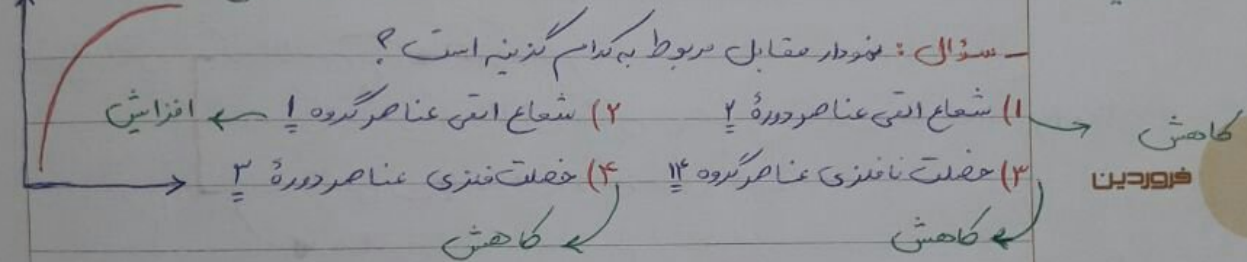 - سؤال : نمودار مقابل مربوط به کدام گزینه است ؟
۱) شعاع اتمی عناصر دورهٔ ۲ ۲) شعاع اتمی عناصر گروه ۱ افزایش
کاهش
۳) خصلت نافلزی عناصر گروه ۱۴ ۴) خصلت فلزی عناصر دورهٔ ۳
فروردین
کاهش کاهش